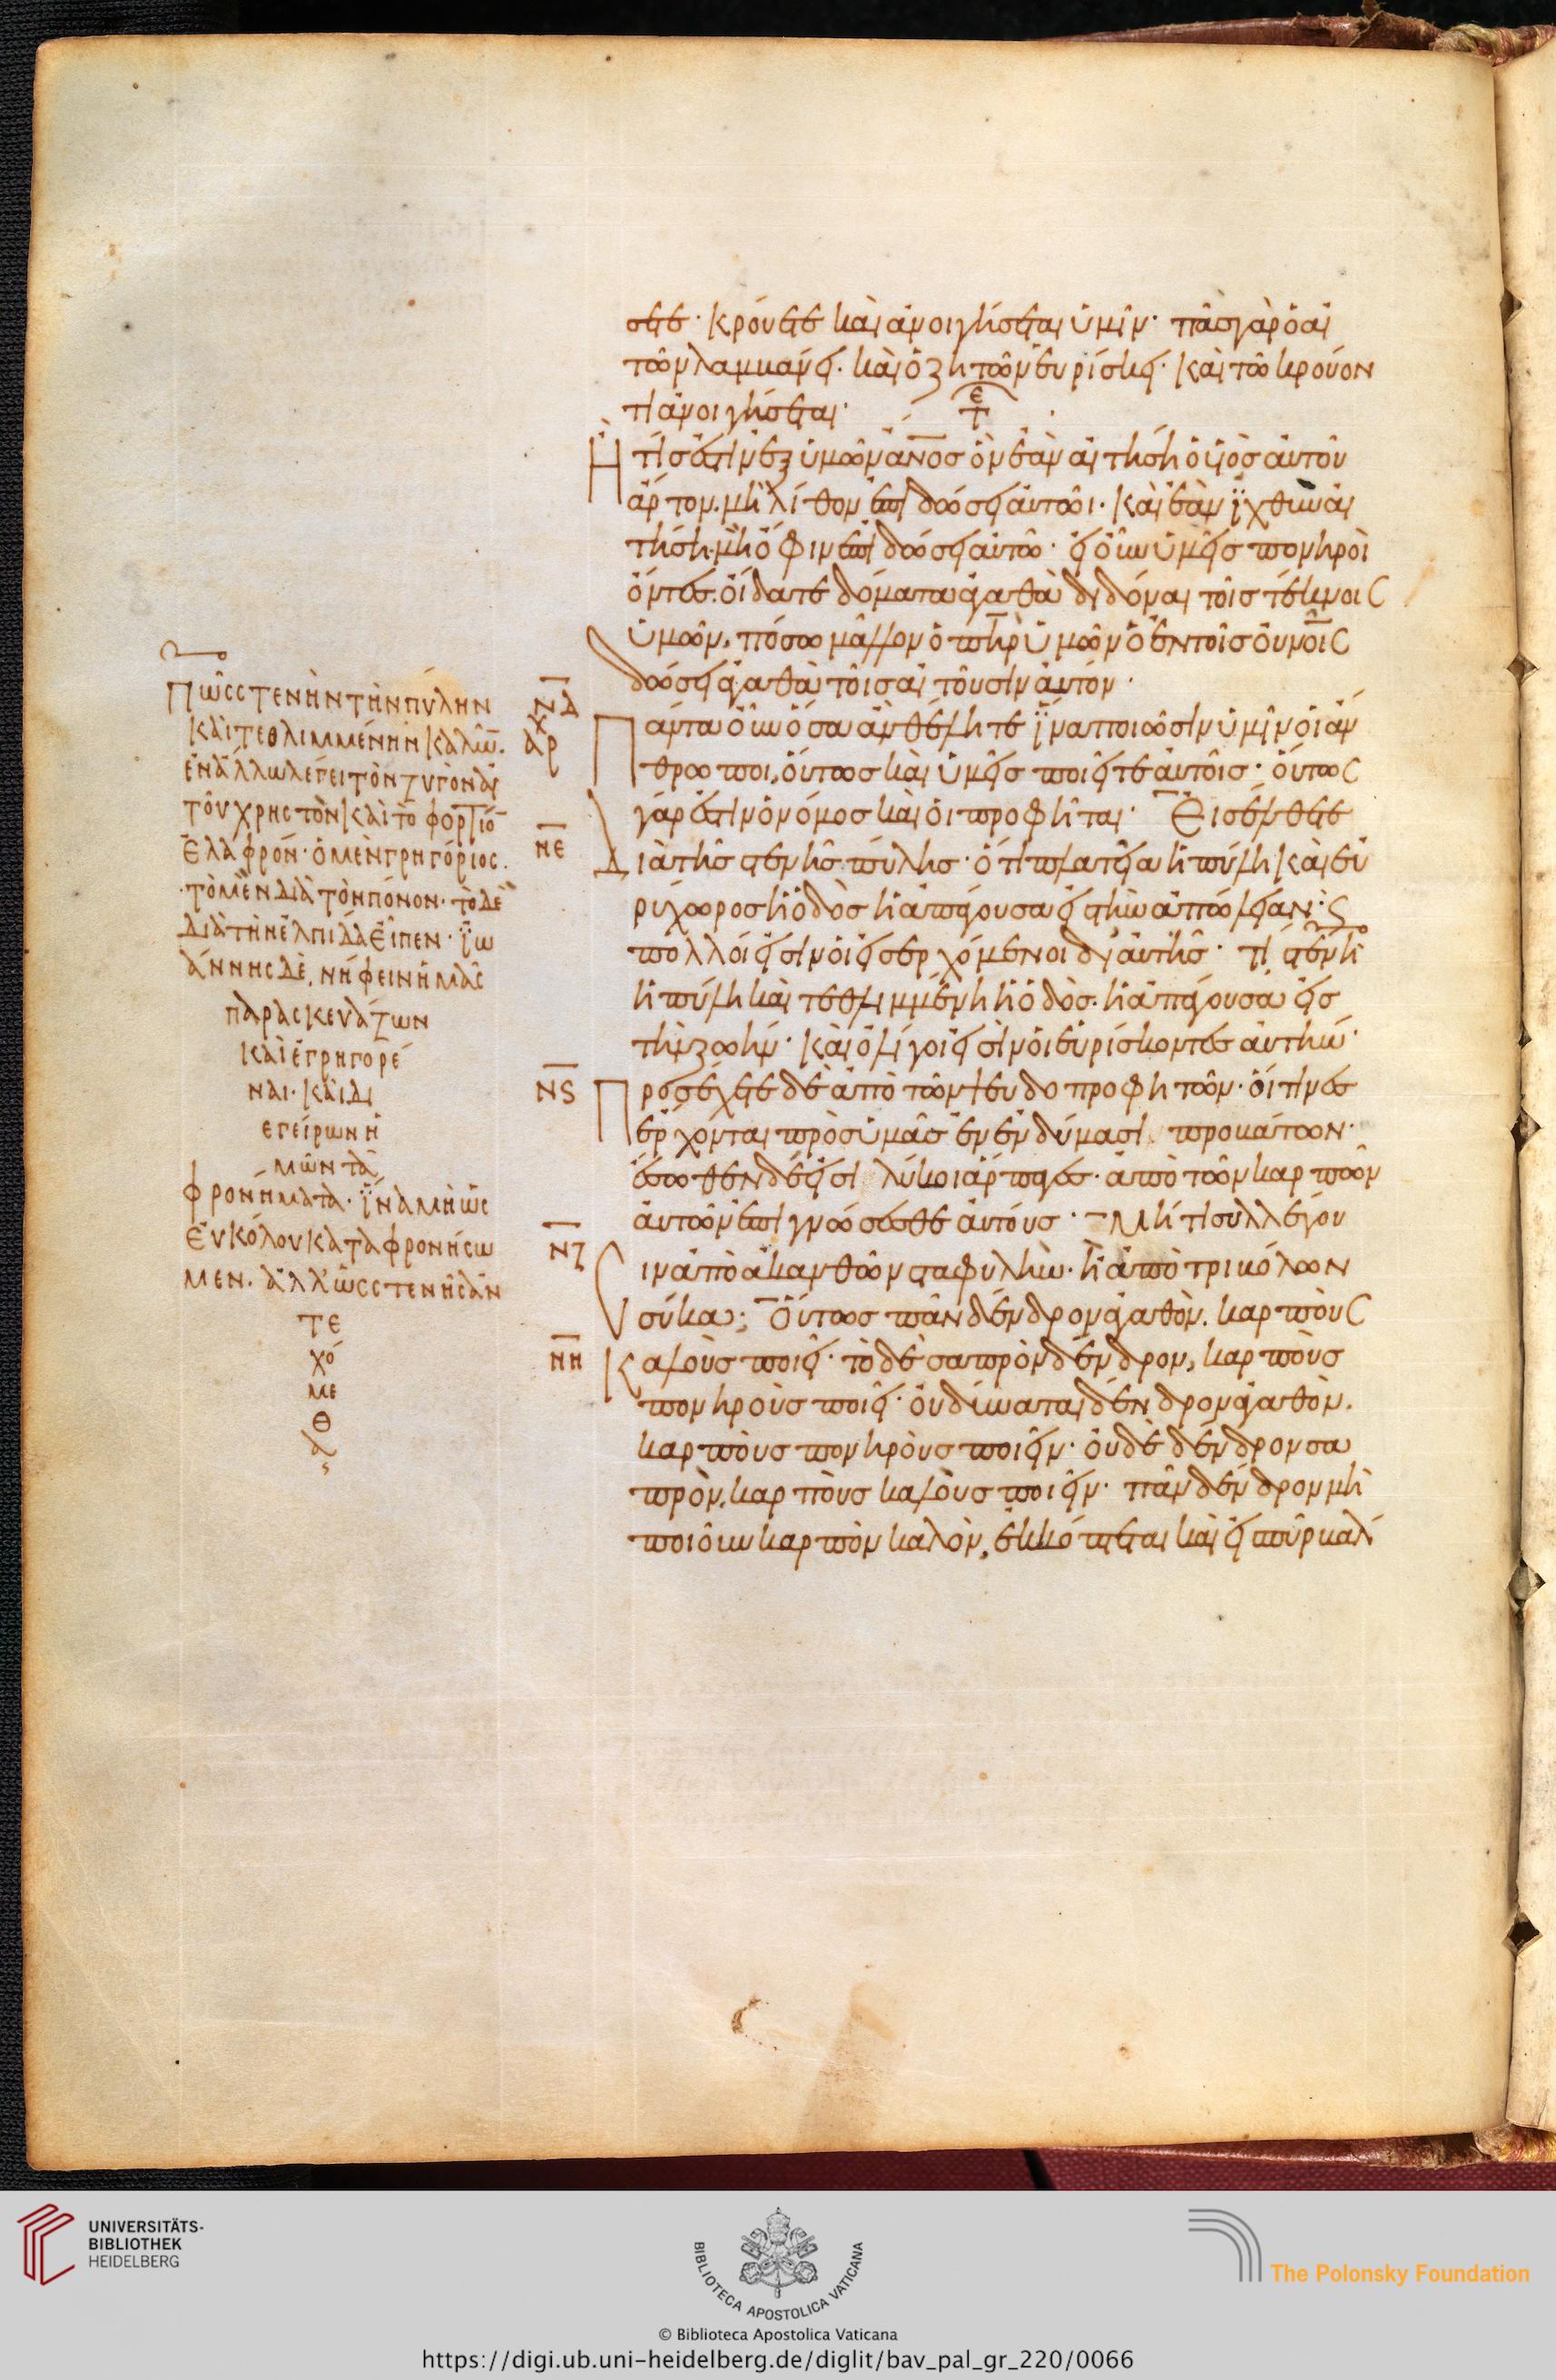 σετε· κρούετε καὶ ἀνοιγήσεται ὑμῖν· πᾶς γὰρ ὁ αἰ
τῶν λαμβάνει. καὶ ὁ ζητῶν εὑρίσκει· καὶ τῶ κρούον
τι ἀνοιγήσεται·
Ἢ τίς ἐστιν ἐξ ὑμῶν ἄνος ὃν ἐὰν αἰτήση ὁ υἱὸς αὐτοῦ
ἄρτον. μὴ λίθον ἐπιδώσει αὐτῶι· καὶ ἐὰν ἰχθὺν αἰ
τήση. μὴ ὄφιν ἐπιδώσει αὐτῶ· εἰ οὖν ὑμεῖς πονηροὶ
ὄντες. οἴδατε δόματα ἀγαθὰ διδόναι τοῖς τέκνοις
ὑμῶν, πόσω μᾶλλον ὁ πηρ ὑμῶν ὁ ἐν τοῖς οὐνοῖς
δώσει ἀγαθὰ τοῖς αἰτοῦσιν αὐτόν·
ΝΔ
αρχ
Πάντα οὖν ὅσα ἂν θέλητε ἵνα ποιῶσιν ὑμῖν οἱ ἄν
θρωποι, οὕτως καὶ ὑμεῖς ποιεῖτε αὐτοῖς· οὕτως
γάρ ἐστιν ὁ νόμος καὶ οἱ προφῆται· Εἰσέλθετε
ΝΕ
Διὰ τῆς στενῆς πύλης· ὅτι πλατεῖα ἡ πύλη καὶ εὐ
ρύχωρος ἡ ὁδὸς ἡ ἀπάγουσα εἰς τὴν ἀπώλειαν· καὶ
πολλοί εἰσιν οἱ εἰσερχόμενοι δι' αὐτῆς· τί στενὴ
ἡ πύλη καὶ τεθλιμμένη ἡ ὁδὸς. ἡ ἀπάγουσα εἰς
τὴν ζωήν· καὶ ὀλίγοι εἰσὶν οἱ εὑρίσκοντες αὐτήν·
ΝϚ
Προσέχετε δὲ ἀπὸ τῶν ψευδοπροφητῶν· οἵτινες
ἔρχονται πρὸς ὑμᾶς ἐν ἐνδύμασι προβάτων·
ἔσωθεν δέ εἰσι λύκοι ἅρπαγες· ἀπὸ τῶν καρπῶν
αὐτῶν ἐπιγνώσεσθε αὐτούς· Μήτι συλλέγου
ΝΖ
ιν ἀπὸ ἀκανθῶν σταφυλὴν. ἢ ἀπὸ τριβόλων
σύκα; Οὕτως πᾶν δένδρον ἀγαθὸν. καρποὺς
ΝΗ
καλοὺς ποιεῖ· τὸ δὲ σαπρὸν δένδρον, καρποὺς
πονηροὺς ποιεῖ· οὐ δύναται δένδρον ἀγαθὸν.
καρποὺς πονηροὺς ποιεῖν· οὐδὲ δένδρον σα
πρὸν, καρποὺς καλοὺς ποιεῖν· πᾶν δένδρον μὴ
ποιοῦν καρπὸν καλὸν, ἐκκόπτεται καὶ εἰς πῦρ βάλλ
Πῶς στενὴν τὴν πύλην
καὶ τεθλιμμένην καλῶν.
ἐν ἄλλω λέγει τὸν ζυγὸν αὐ
τοῦ χρηστὸν καὶ τὸ φορτίον
ἐλαφρόν· ὁ μὲν γρηγόριος.
τὸ μὲν διὰ τὸν πόνον· τὸ δὲ
διὰ τὴν ἐλπίδα εἶπεν· ἰω
άννης δὲ, νήφειν ἡμᾶς
παρασκευάζων
καὶ ἐγρηγορέ
ναι· καὶ δι
εγείρων ἡ
μῶν τὰ
φρονήματα· ἵνα μὴ ὡς
εὐκόλου καταφρονήσω
μεν. ἄλλως στενῆς ἂν
τε
χό
με
θ
α
UNIVERSITÄTS-
BIBLIOTHEK
HEIDELBERG
BIBLIOTECA APOSTOLICA VATICANA
The Polonsky Foundation
© Biblioteca Apostolica Vaticana
https://digi.ub.uni-heidelberg.de/diglit/bav_pal_gr_220/0066